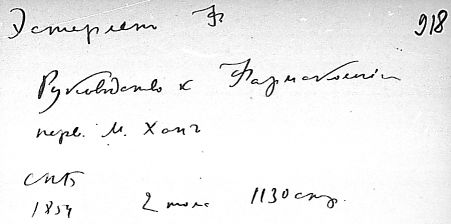 Эстерлен Ф 918
Руководство к Фармакологіи
перв. М. Хан
СПБ
1854 2 тома 1130 стр.